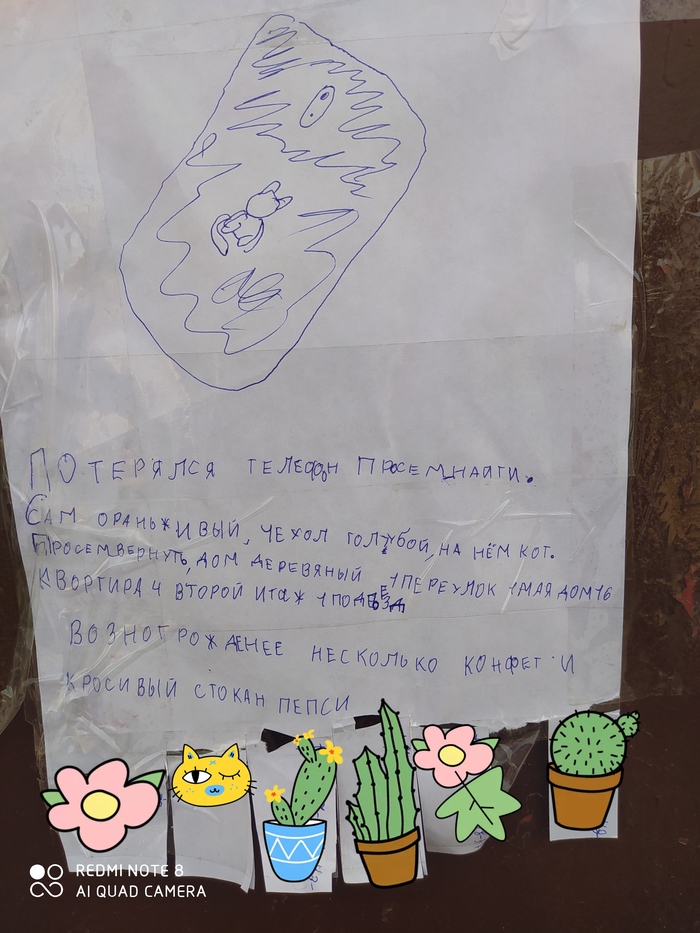 ПОТЕРЯЛСЯ ТЕЛЕФОН ПРОСЕМ НАЙТИ.
САМ ОРАНЬЖИВЫЙ, ЧЕХОЛ ГОЛУБОЙ, НА НЁМ КОТ.
ПРОСЕМ ВЕРНУТЬ, ДОМ ДЕРЕВЯНЫЙ 1 ПЕРЕУЛОК 1 МАЯ ДОМ 16
КВОРТИРА 4 ВТОРОЙ ИТАЖ 1 ПОДЕЗД
ВОЗНОГРОЖДЕНЕЕ НЕСКОЛЬКО КОНФЕТ И
КРОСИВЫЙ СТОКАН ПЕПСИ
REDMI NOTE 8
AI QUAD CAMERA